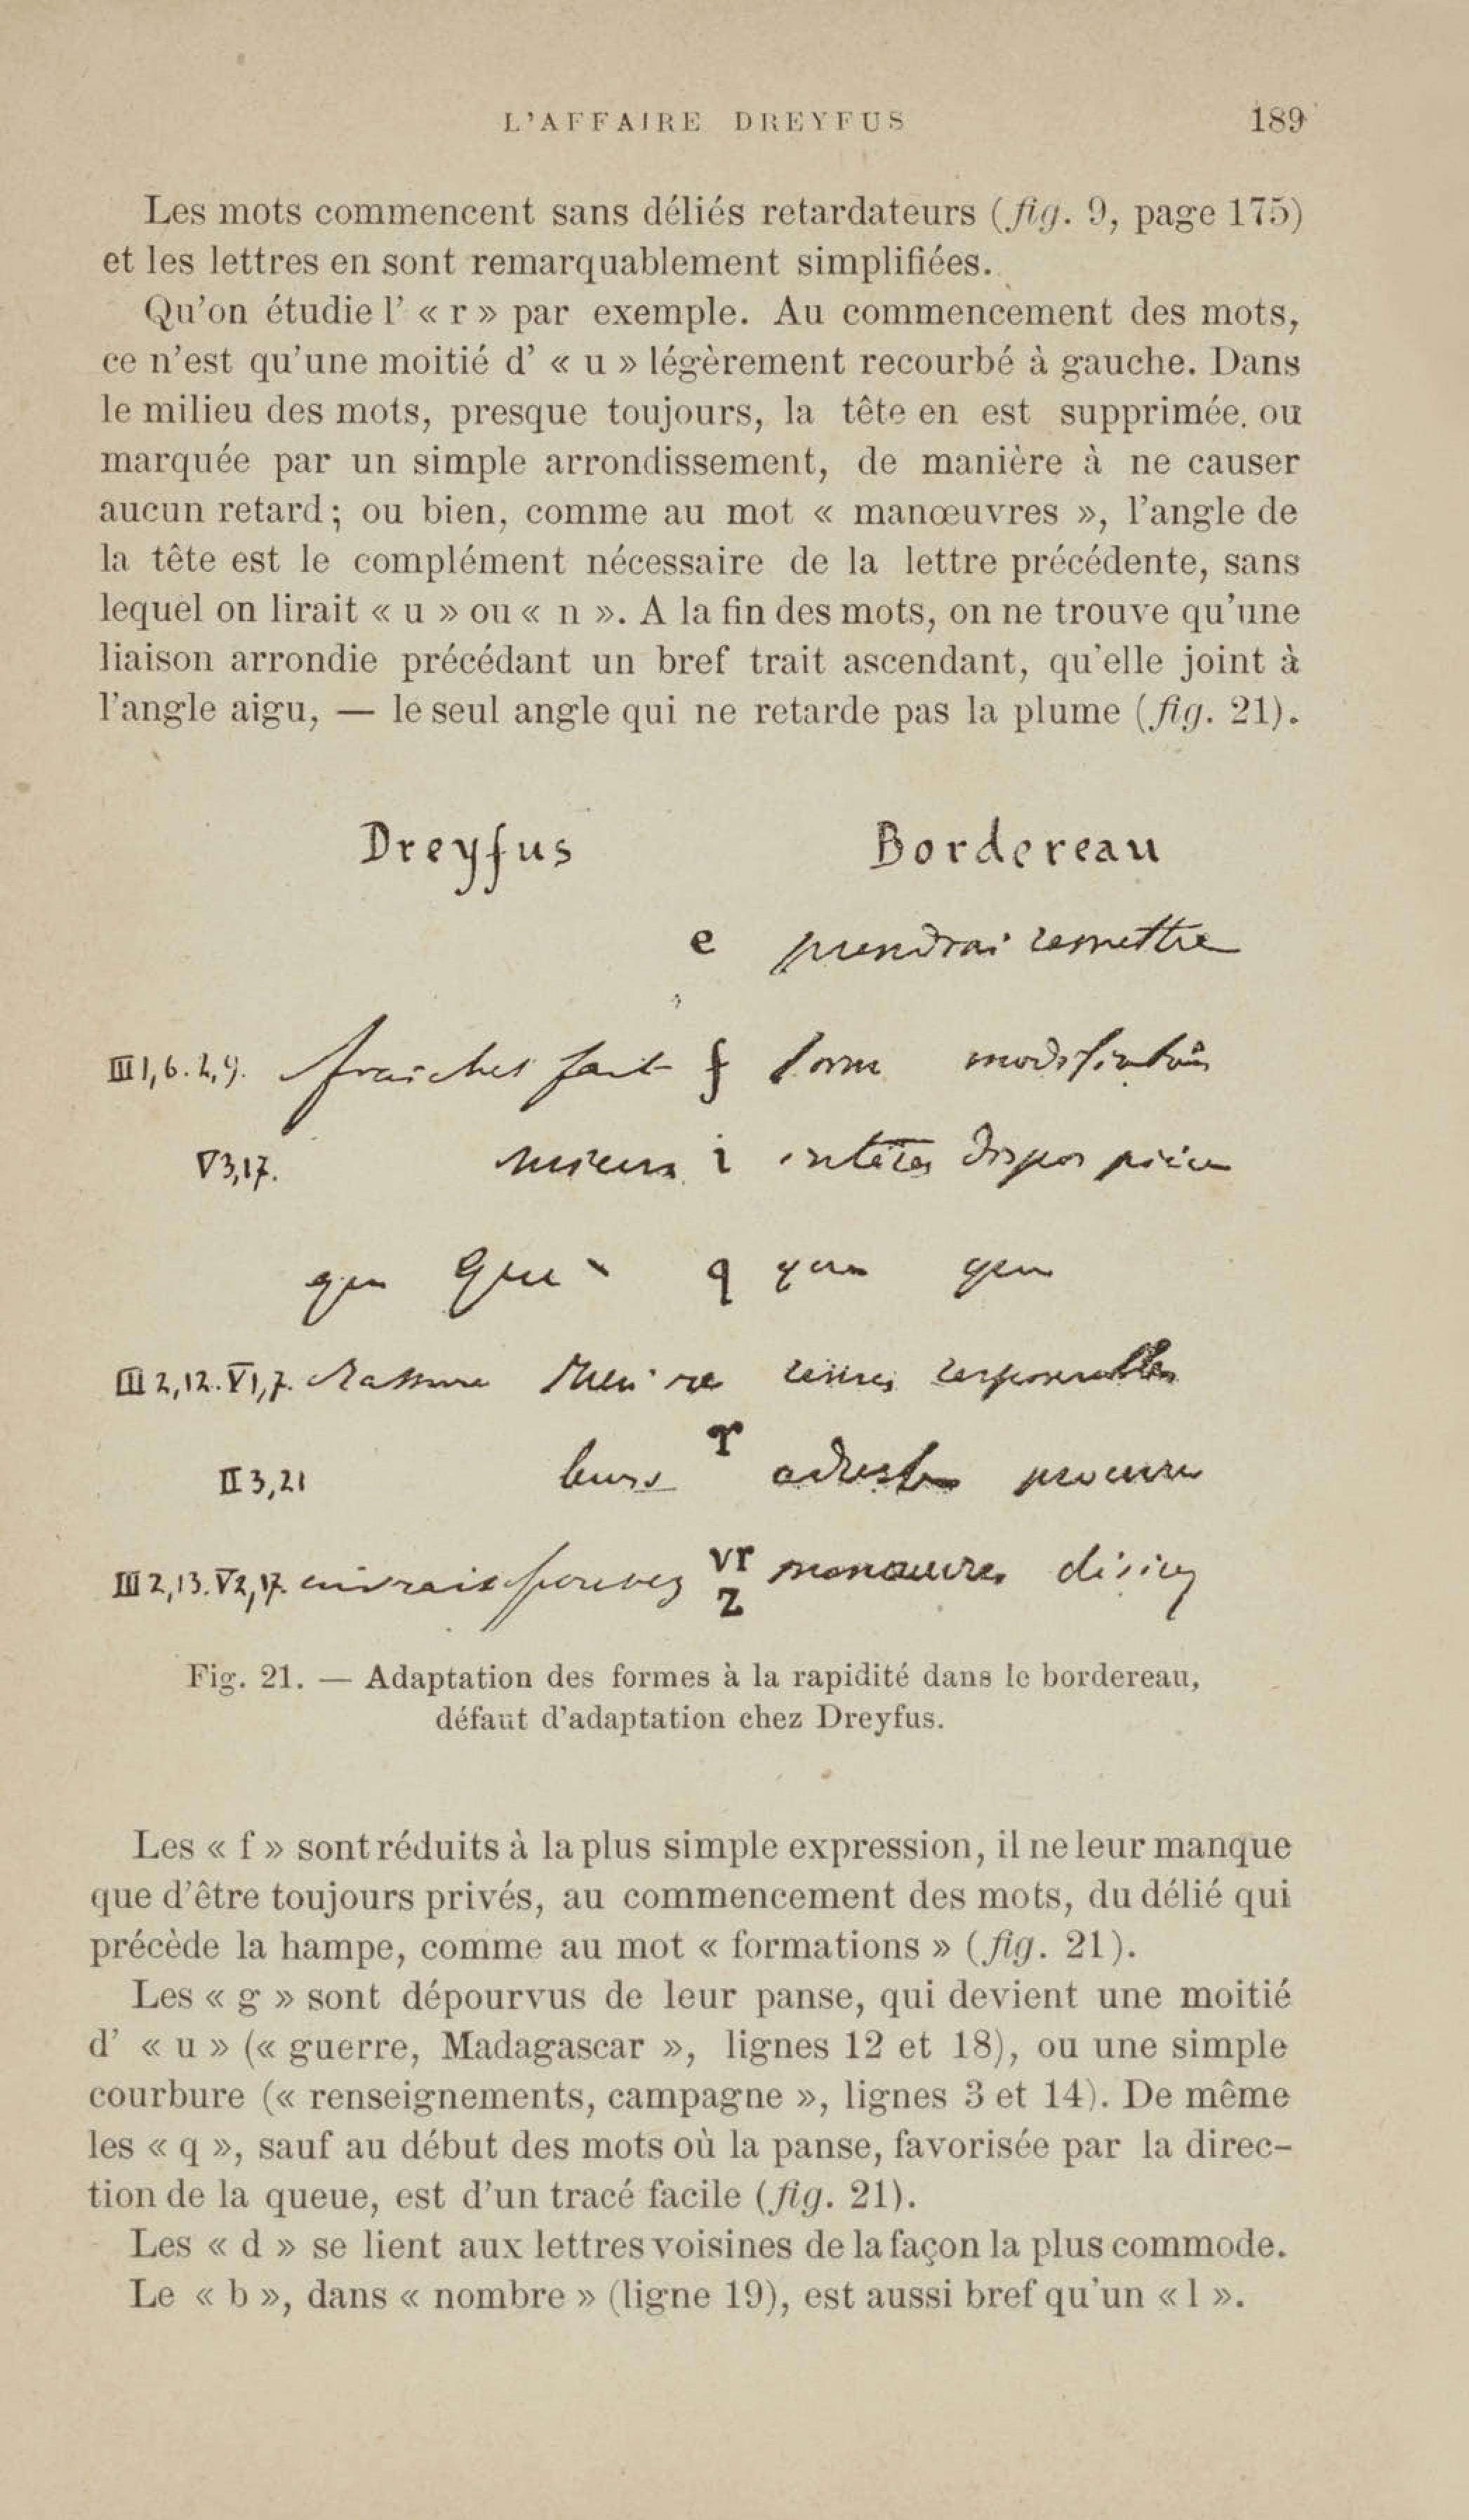 L'AFFAIRE DREYFUS 189
Les mots commencent sans déliés retardateurs (fig. 9, page 175)
et les lettres en sont remarquablement simplifiées.
Qu'on étudie l' « r » par exemple. Au commencement des mots,
ce n'est qu'une moitié d' « u » légèrement recourbé à gauche. Dans
le milieu des mots, presque toujours, la tête en est supprimée, ou
marquée par un simple arrondissement, de manière à ne causer
aucun retard; ou bien, comme au mot « manœuvres », l'angle de
la tête est le complément nécessaire de la lettre précédente, sans
lequel on lirait « u » ou « n ». A la fin des mots, on ne trouve qu'une
liaison arrondie précédant un bref trait ascendant, qu'elle joint à
l'angle aigu, — le seul angle qui ne retarde pas la plume (fig. 21).
Dreyfus Bordereau
e prendrai remettre
III 1,6. 2,9. fraiches fait f form modification
V 3,17. i intérêts dispos pièce
que que q que que
III 2,12. VI 1,7.
r
II 3,21 leurs adresse procure
III 2,13. V 2,17. pouvez vr manœuvres
z
Fig. 21. — Adaptation des formes à la rapidité dans le bordereau,
défaut d'adaptation chez Dreyfus.
Les « f » sont réduits à la plus simple expression, il ne leur manque
que d'être toujours privés, au commencement des mots, du délié qui
précède la hampe, comme au mot « formations » (fig. 21).
Les « g » sont dépourvus de leur panse, qui devient une moitié
d' « u » (« guerre, Madagascar », lignes 12 et 18), ou une simple
courbure (« renseignements, campagne », lignes 3 et 14). De même
les « q », sauf au début des mots où la panse, favorisée par la direc-
tion de la queue, est d'un tracé facile (fig. 21).
Les « d » se lient aux lettres voisines de la façon la plus commode.
Le « b », dans « nombre » (ligne 19), est aussi bref qu'un « l ».